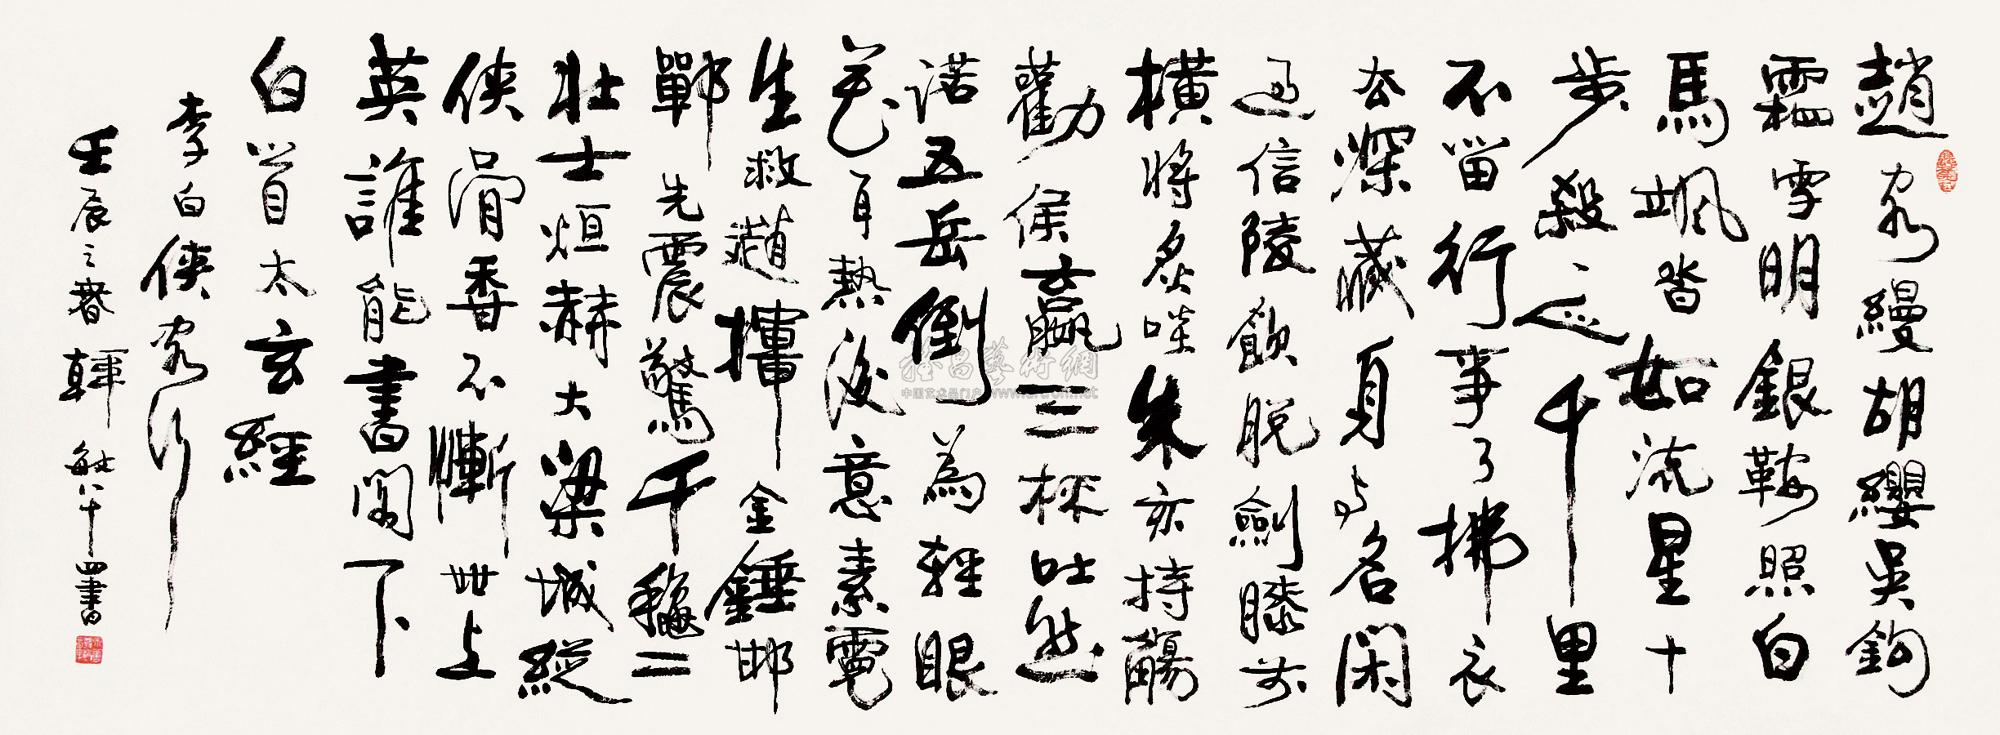 趙客縵胡纓吳鉤
霜雪明銀鞍照白
馬颯沓如流星十
步殺一人千里
不留行事了拂衣
去深藏身与名閑
過信陵飲脫劍膝前
橫將炙啖朱亥持觴
勸侯嬴三杯吐然
諾五岳倒為輕眼
花耳熱後意素霓
生救趙揮金錘邯
鄲先震驚千穐二
壯士烜赫大梁城縱
俠骨香不慚世上
英誰能書閣下
白首太玄經
李白俠客行
壬辰之春韓敏八十四書
雅昌藝術網